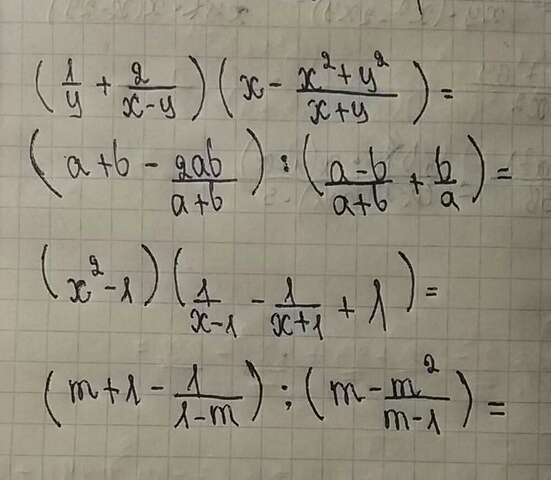 (1/y + 2/(x-y))(x - (x²+y²)/(x+y)) =
(a+b - 2ab/(a+b)) : ((a-b)/(a+b) + b/a) =
(x²-1)(1/(x-1) - 1/(x+1) + 1) =
(m+1 - 1/(1-m)) : (m - m²/(m-1)) =